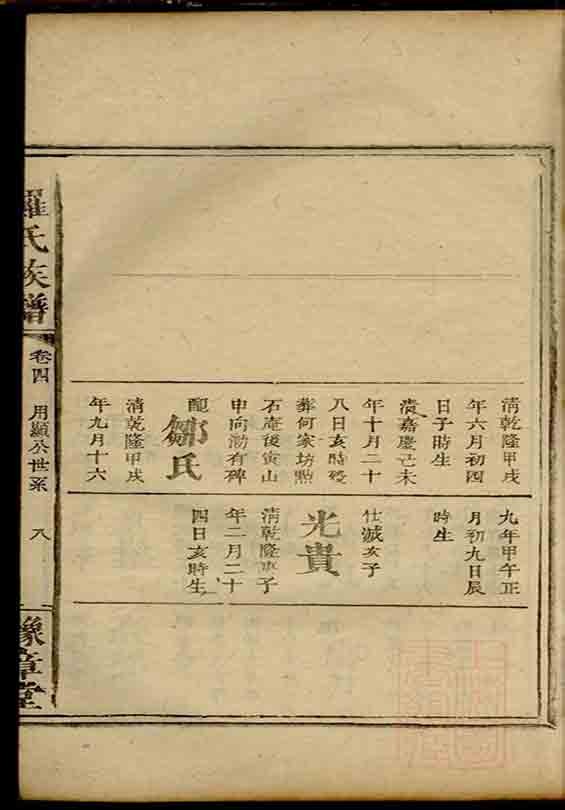 清乾隆甲戌
年六月初四
日子時生
清嘉慶己未
年十月二十
八日亥時歿
葬何家坊點
石庵後寅山
申向泐有碑
配鄒氏
清乾隆甲戌
年九月十六
九年甲午正
月初九日辰
時生
仕滅亥子
光貴
清乾隆庚子
年二月二十
四日亥時生
羅氏族譜
卷四 用顯公世系 八
豫章堂